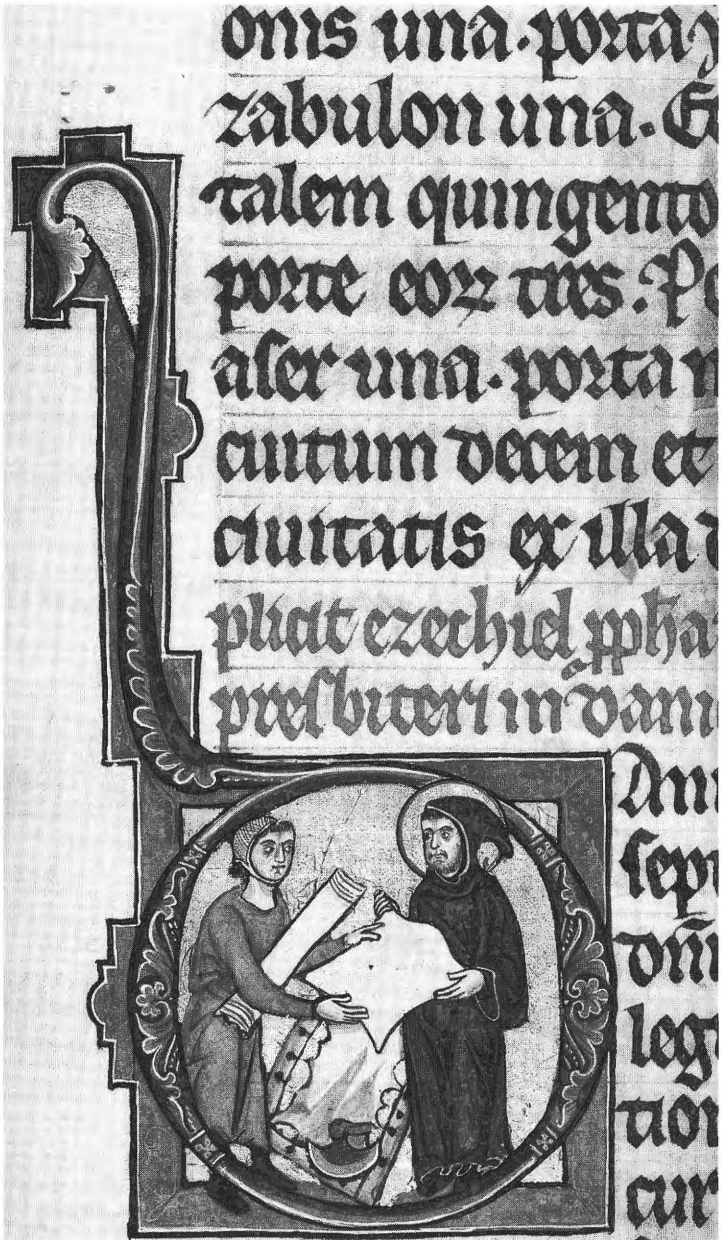 onis una. porta
zabulon una. Et
talem quingento
porte eorꝝ tres. Po
aser una. porta n
cuitum decem et
ciuitatis ex illa d
plicit ezechiel ꝓpha
presbiteri in dani
Ani
sept
dn̄i
legi
tion
cur